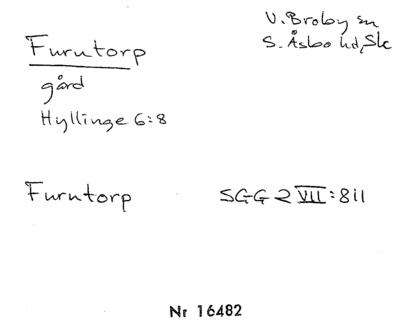 Furutorp
V. Broby sn
S. Åsbo hd, Sk
gård
Hyllinge 6:8
Furutorp SGG 2 VII:8il
Nr 16482